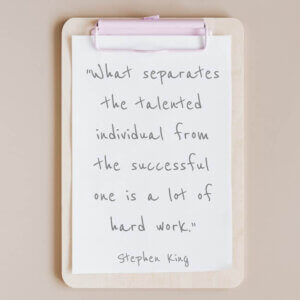 "What separates
the talented
individual from
the successful
one is a lot of
hard work."
Stephen King